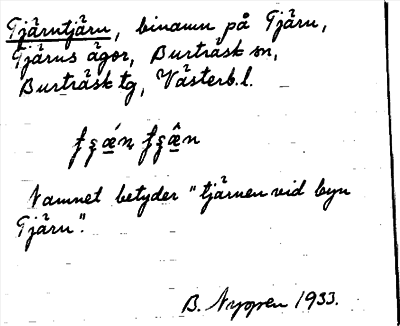 Tjärntjärn, binamn på Tjärn,
Tjärns ägor, Burträsk sn,
Burträsk tg, Västerb.l.
Namnet betyder "tjärnen vid byn
Tjärn".
B. Nygren 1933.